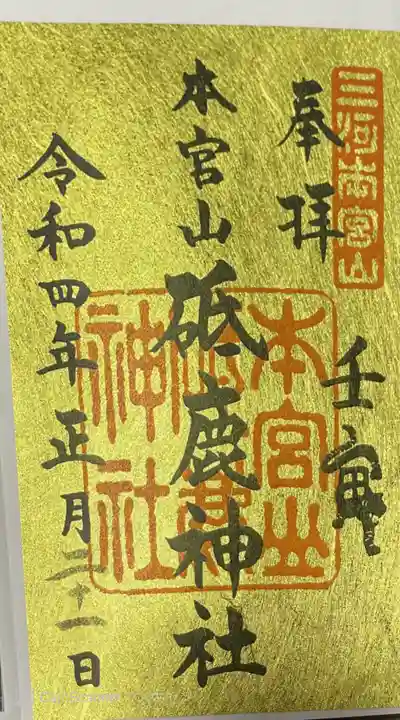 三河本宮山
奉拝
壬寅
本宮山
砥鹿神社
本宮山
砥鹿
神社
令和四年正月二十一日